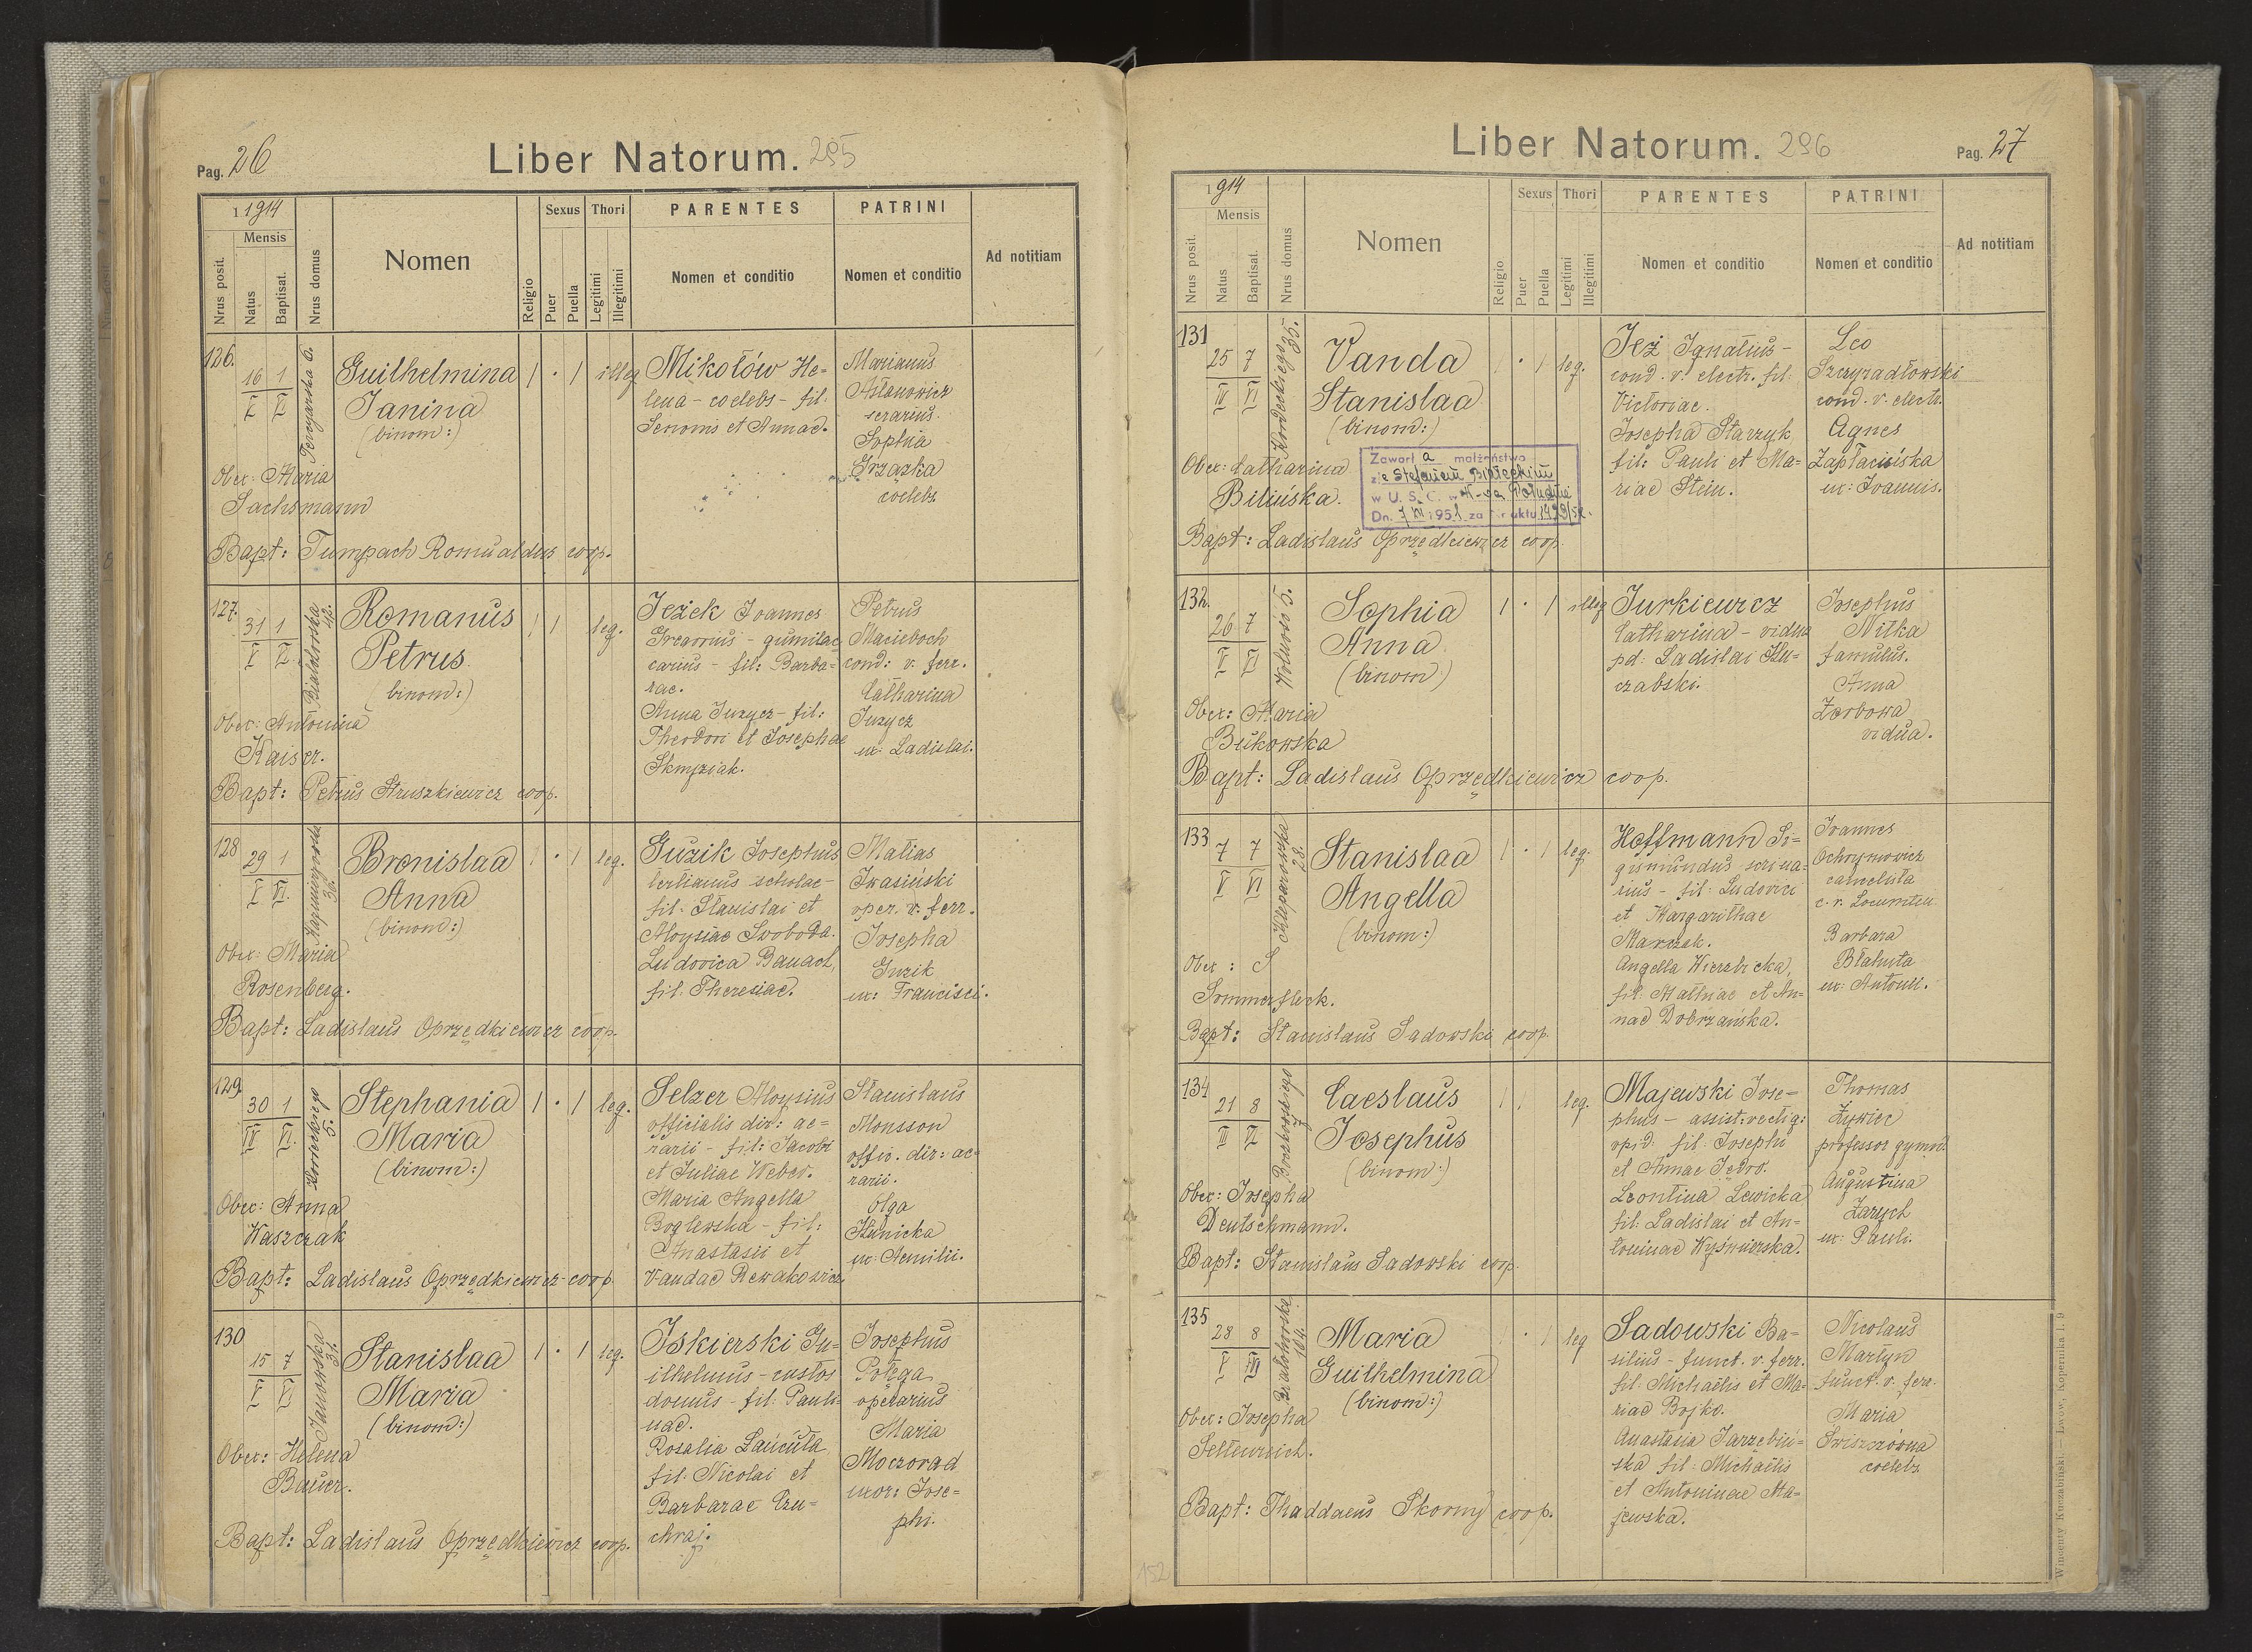 Pag. 26
Liber Natorum. 295
1914
Mensis
Nrus posit.
Natus
Baptisat.
Nrus domus
Nomen
Religio
Sexus
Puer
Puella
Thori
Legitimi
Illegitimi
PARENTES
Nomen et conditio
PATRINI
Nomen et conditio
Ad notitiam
126.
16 1
V VI
6.
Guilhelmina
Janina
(binom:)
1 · 1 illeg
Mikołów He-
lena - coelebs - fil.
et Annae.
Marianus
Sophia
coelebs
Obex: Maria
Sachsmann
Bapt: Tumpach Romualdus coop.
127.
31 1
V VI.
42.
Romanus
Petrus
(binom:)
1 1 leg.
Jeżek Joannes
fil: Barba-
rae.
Anna Juzycz - fil:
Theodori et Josephae
Petrus
cond: v. ferr.
Catharina
Juzycz
ux: Ladislai.
Obex: Antonina
Kaiser.
Bapt: Petrus Struszkiewicz coop.
128
29 1
V VI.
Bronislaa
Anna
(binom:)
1 · 1 leg.
Guzik Josephus
scholae -
fil: Stanislai et
Aloysiae Swoboda.
Ludovica Banach,
fil: Theresiae.
Matias
Iwasiński
oper. v. ferr.
Josepha
Guzik
ux: Francisci.
Obex: Maria
Rosenberg.
Bapt: Ladislaus Oprzędkiewicz coop.
129.
30 1
IV VI.
5.
Stephania
Maria
(binom:)
1 · 1 leg.
Selzer Aloysius
officialis dir: ae-
rarii - fil: Jacobi
et Juliae Weber.
Maria Angella
fil:
Anastasii et
Vandae Rewakowicz
Stanislaus
Monsson
offic. dir: ae-
rarii.
Olga
ux: Aemilii.
Obex: Anna
Waszczak
Bapt: Ladislaus Oprzędkiewicz coop
130
15 7
V VI
Janowska
Stanislaa
Maria
(binom:)
1 · 1 leg.
Iskierski Gu-
ilhelmus - custos
domus - fil: Pauli-
nae.
Rosalia
fil: Nicolai et
Barbarae Czu-
chraj.
Josephus
Potęga
operarius
Maria
Moczorad
uxor: Jose-
phi.
Obex: Helena
Bauer.
Bapt: Ladislaus Oprzędkiewicz coop.
Liber Natorum. 296
Pag. 27
1914
Mensis
Nrus posit.
Natus
Baptisat.
Nrus domus
Nomen
Religio
Sexus
Puer
Puella
Thori
Legitimi
Illegitimi
PARENTES
Nomen et conditio
PATRINI
Nomen et conditio
Ad notitiam
131
25 7
IV VI
Kordeckiego 35.
Vanda
Stanislaa
(binom:)
1 · 1 leg.
Jeż Ignatius -
cond. v. electr. fil.
Victoriae.
Josepha Starzyk
fil: Pauli et Ma-
riae Stein.
Leo
Szczyradłowski
cond. v. electr.
Agnes
ux: Joannis.
Obex: Catharina
Bilińska.
Zawarł a małżeństwo
z Stefanem Białeckim
w U. S. C. w
Dn. 7 XI 1951 za Nr aktu
Bapt: Ladislaus Oprzędkiewicz coop.
132.
26 7
V VI
5.
Sophia
Anna
(binom)
1 · 1 illeg
Jurkiewicz
Catharina - vidua
pd: Ladislai Klu-
czabski.
Josephus
Nitka
famulus.
Anna
Zorbowa
vidua.
Obex: Maria
Bukowska
Bapt: Ladislaus Oprzędkiewicz coop.
133
7 7
V VI
Kleparowska
28.
Stanislaa
Angella
(binom:)
1 · 1 leg.
Hoffmann Si-
gismundus scrina-
rius - fil: Ludovici
et Margarithae
Marczak.
Angella Wierzbicka,
fil: Mathiae et An-
nae Dobrzańska.
Joannes
Ochrymowicz
cancelista
c. r. Locumten.
Barbara
ux: Antonii.
Obex: S
Bapt: Stanislaus Sadowski coop.
134
21 8
III VI
7
Caeslaus
Josephus
(binom:)
1 1 leg.
Majewski Jose-
phus - assist: vectig:
opid. fil: Josephi
et Annae
Leontina Lewicka
fil: Ladislai et An-
toninae
Thomas
Żywiec
professor gymn.
Augustina
Zarych
ux: Pauli.
Obex: Josepha
Deutschmann.
Bapt: Stanislaus Sadowski coop.
135
28 8
V VI
104.
Maria
Guilhelmina
(binom:)
1 · 1 leg
Sadowski Ba-
silius - funct. v. ferr.
fil: Michaëlis et Ma-
riae Bojko.
Anastasia Jarzębiń-
ska fil: Michaëlis
et Antoninae Ma-
jewska.
Nicolaus
Martyn
funct. v. ferr.
Maria
coelebs
Obex: Josepha
Bapt: Thaddaeus Skorny coop.
152
Wincenty Kuczabiński — Lwów, Kopernika l. 9